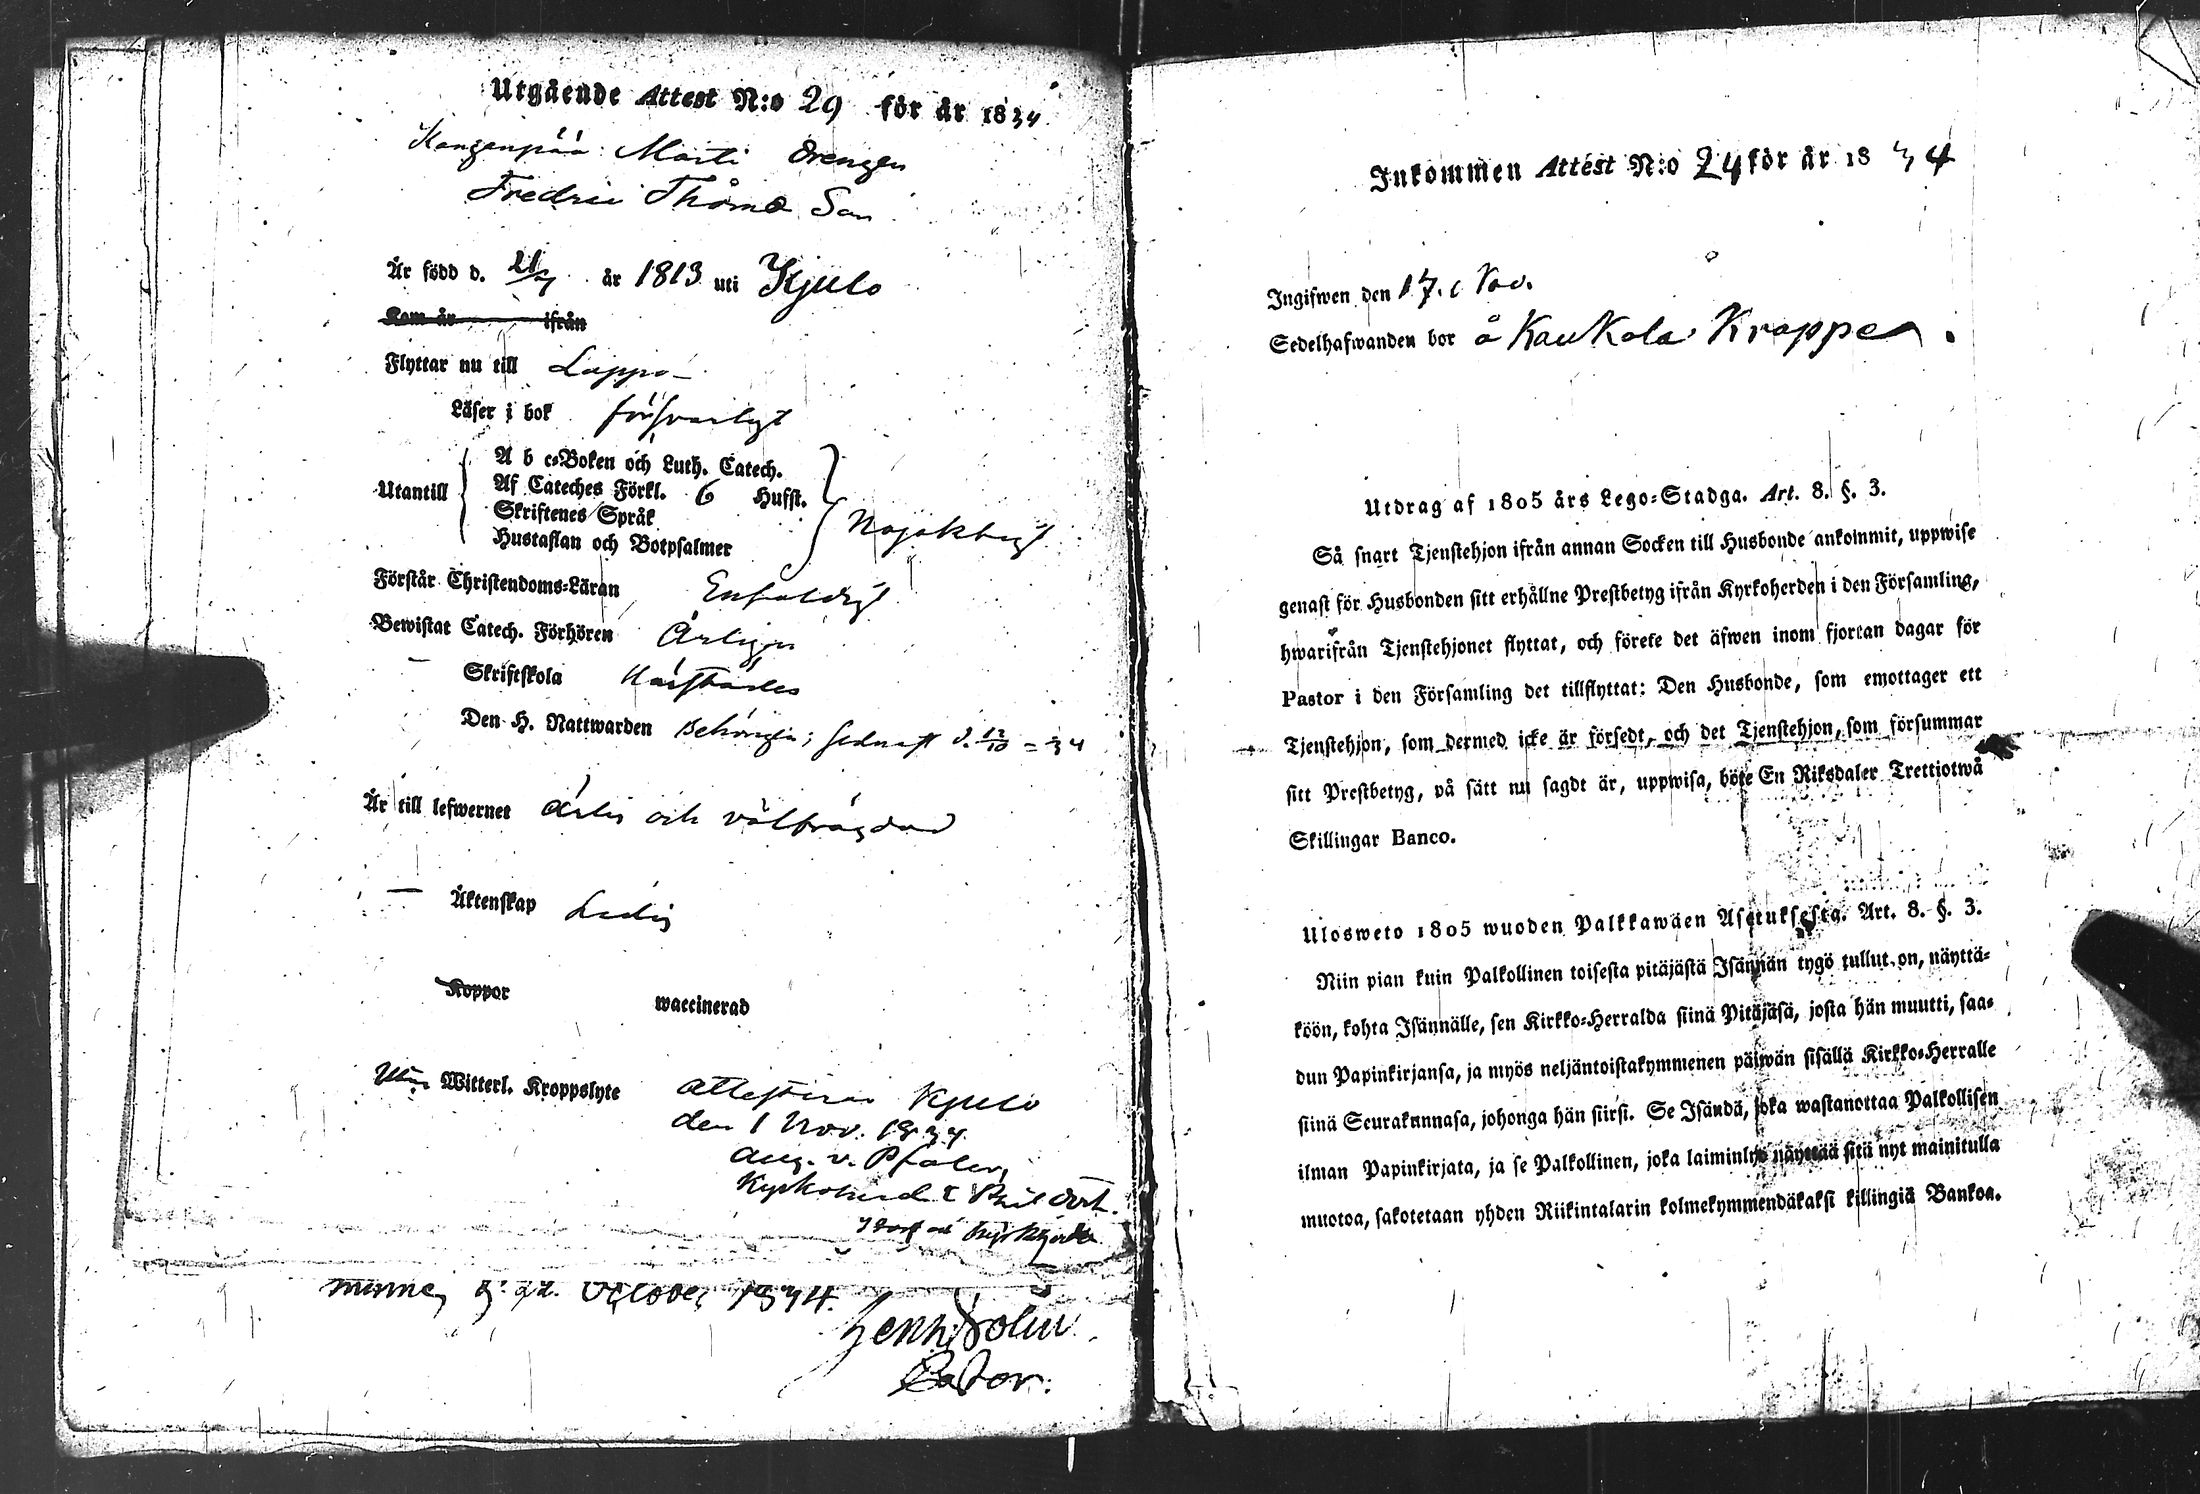 Utgående Attest N:o 29 för år 1834
Kangenpää Marti Drengen
Fredric Thomæ Son
År född d. 21/7 år 1813 uti Kjulo
Kom år ifrån
Flyttar nu till Lappo
Läser i bok försvarligt
A b c=Boken och Luth. Catech.
Utantill Af Cateches Förkl. 6 Hufst.
Skriftenes Språk
Hustaflan och Botpsalmer
Nöjaktligt
Förstår Christendoms=Läran Enfaldigt
Bewistat Catech. Förhören Årligen
— Skriftskola
Den H. Nattwarden Behörigen; sednast d. 12/10 = 34
År till lefwernet ärlig och välfrägdad
— Äktenskap Ledig
Koppor waccinerad
Utan Witterl. Kroppslyte attesterar Kjulo
den 1 Nov. 1834
Aug. v. Pfaler
Kyrkoherde
d: 22. October 1834.
Pastor.
Inkommen Attest N:o 24 för år 1834
Ingifwen den 17. Nov.
Sedelhafwanden bor å Kaukola Krappe.
Utdrag af 1805 års Lego=Stadga. Art. 8. §. 3.
Så snart Tjenstehjon ifrån annan Socken till Husbonde ankommit, uppwise
genast för Husbonden sitt erhållne Prestbetyg ifrån Kyrkoherden i den Församling,
hwarifrån Tjenstehjonet flyttat, och förete det äfwen inom fjortan dagar för
Pastor i den Församling det tillflyttat: Den Husbonde, som emottager ett
Tjenstehjon, som dermed icke är försedt, och det Tjenstehjon, som försummar
sitt Prestbetyg, på sätt nu sagdt är, uppwisa, böte En Riksdaler Trettiotwå
Skillingar Banco.
Ulosweto 1805 wuoden Palkkawäen Asetuksesta. Art. 8. §. 3.
Niin pian kuin Palkollinen toisesta pitäjästä Isännän tygö tullut on, näyttä=
köön, kohta Isännälle, sen Kirkko=Herralda siinä Pitäjäsä, josta hän muutti, saa=
dun Papinkirjansa, ja myös neljäntoistakymmenen päiwän sisällä Kirkko=Herralle
siinä Seurakunnasa, johonga hän siirsi. Se Isändä, joka wastanottaa Palkollisen
ilman Papinkirjata, ja se Palkollinen, joka laiminlyö näyttää sitä nyt mainitulla
muotoa, sakotetaan yhden Riikintalarin kolmekymmendäkaksi killingiä Bankoa.